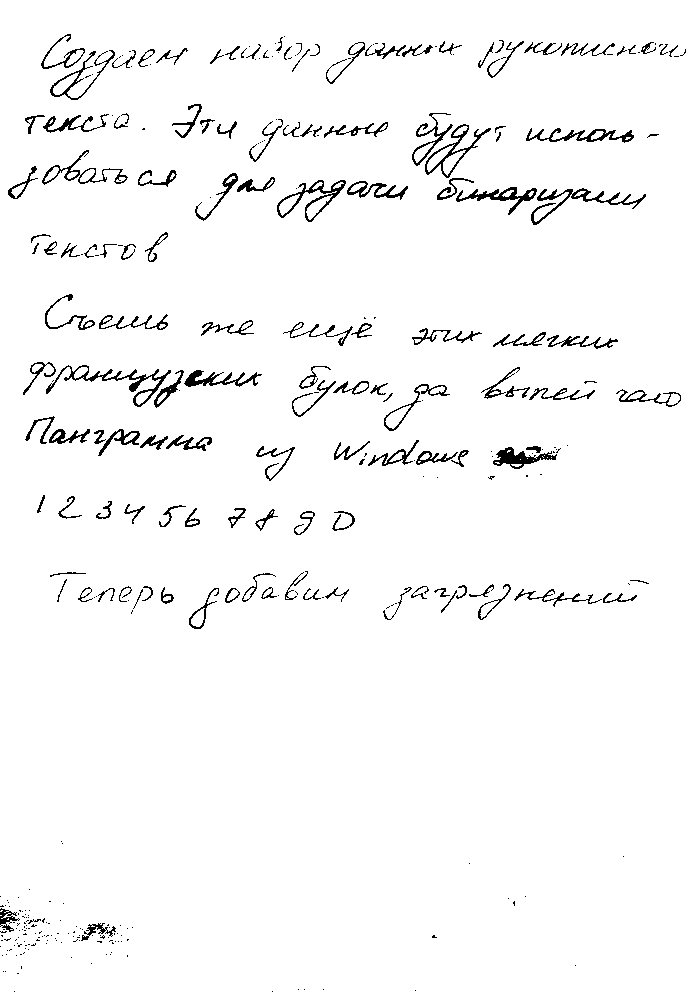 Создаем набор данных рукописного
текста. Эти данные будут исполь-
зоваться для задачи бинаризации
текстов
Съешь же ещё этих мягких
французских булок, да выпей чаю
Панграмма из Windows
1 2 3 4 5 6 7 8 9 0
Теперь добавим загрязнений